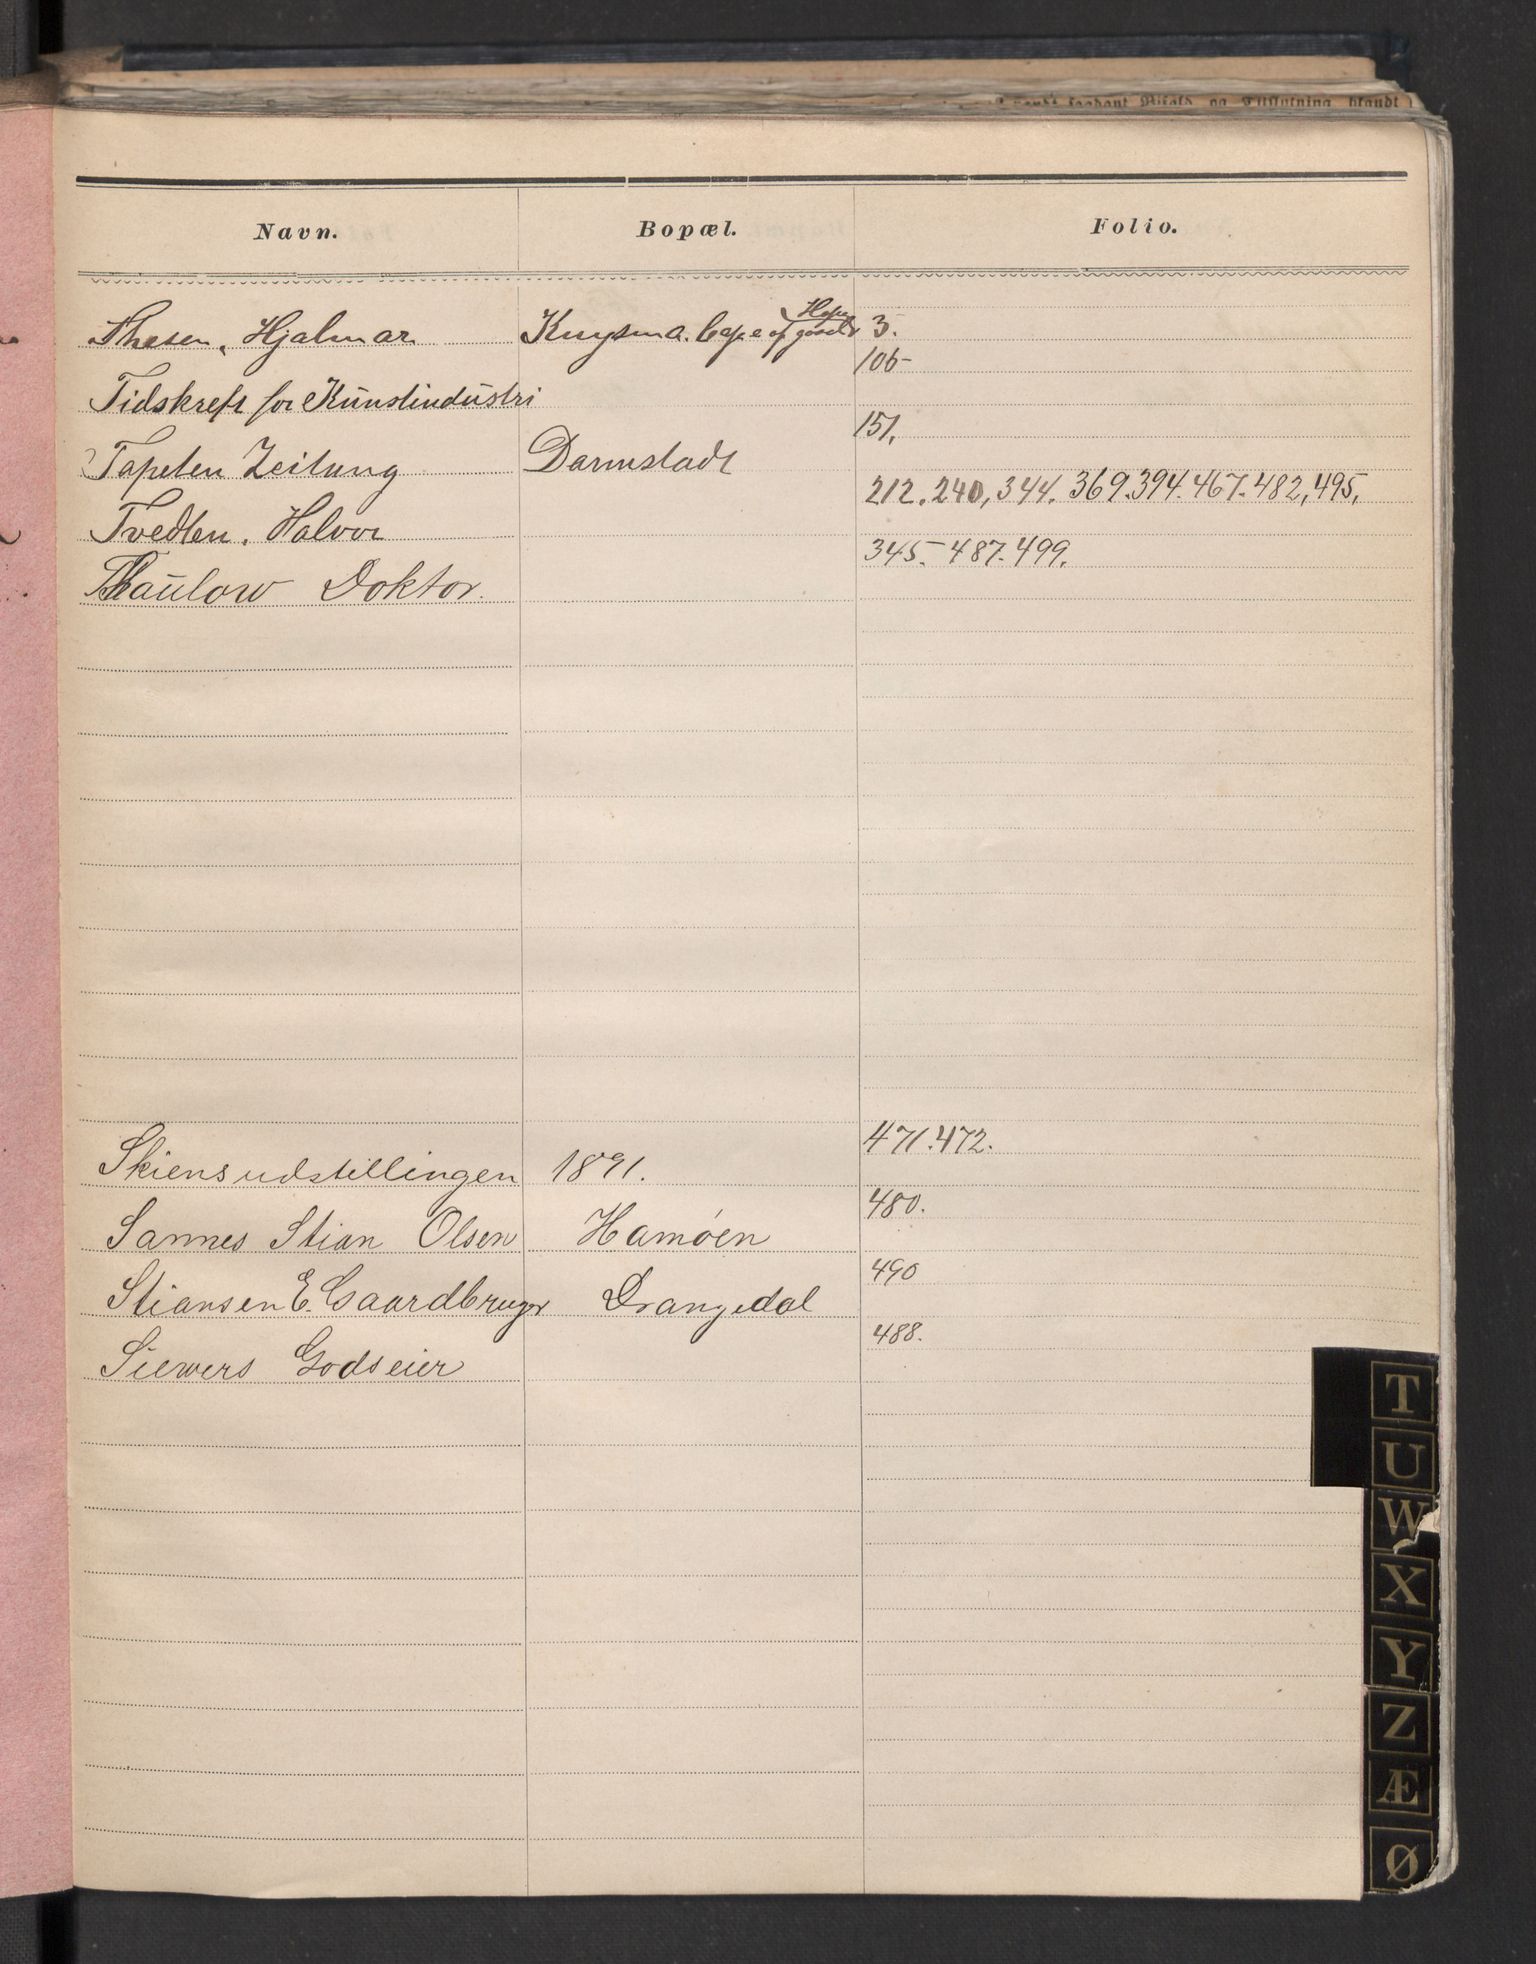 Navn. Bopæl. Folio.
Thesen, Hjalmar Knysma. Cape of Hope 3.
Tidskreft for Kunstindustri 106
Tapeten Zeitung Darmstadt 151.
Tvedten, Halvor 212. 240, 344. 369. 394. 467. 482, 495,
Thaulow Doktor. 345. 487. 499.
Skiensudstillingen 1891. 471. 472.
Sannes Stian Olsen Hamøen 480.
Stiansen E. Gaardbruger Drangedal 490
Siewers Godseier 488.
T
U
W
X
Y
Z
Æ
Ø